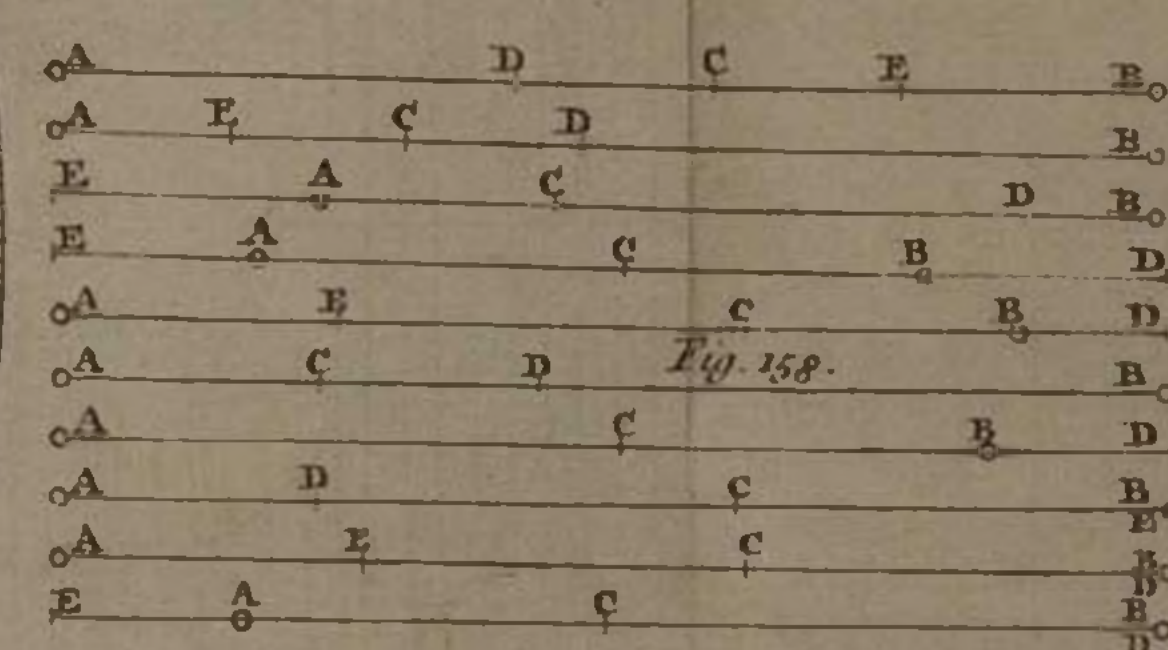 A D C E B
A E C D B
E A C D B
E A C B D
A E C B D
Fig. 158.
A C D B
A C B D
A D C B
E
A E C B
D
E A C B
D